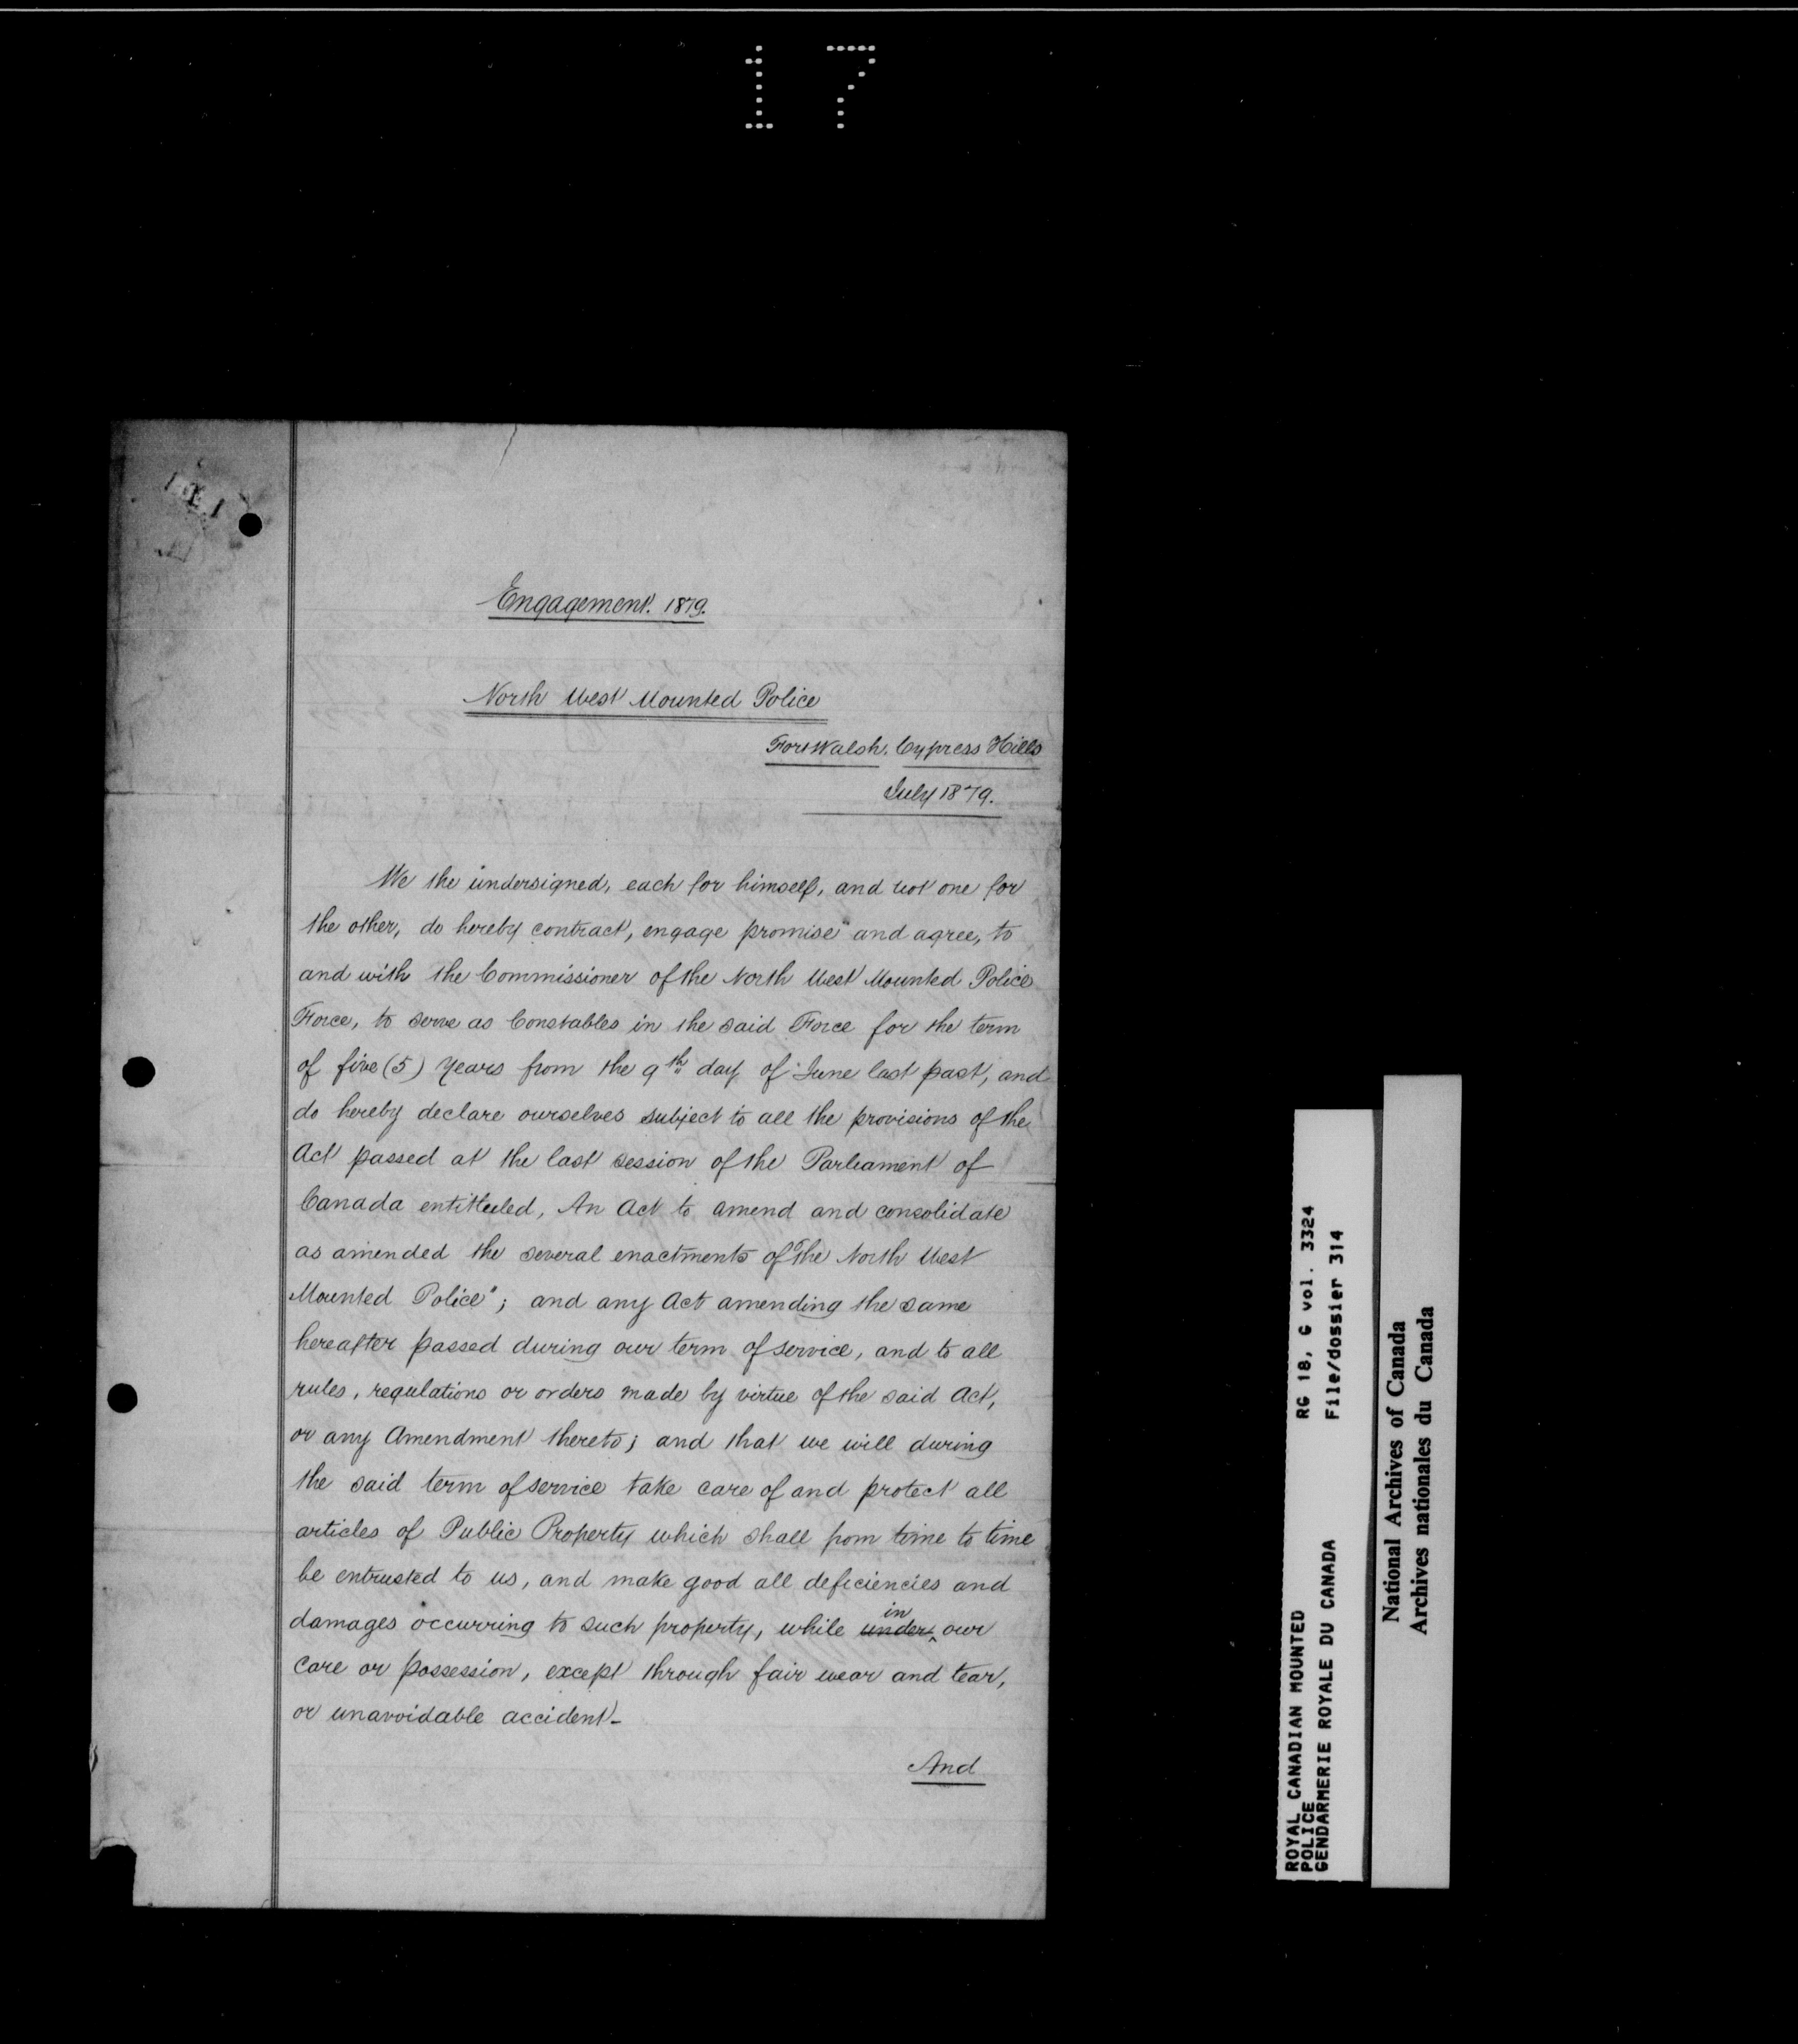 17
Engagement. 1879.
North West Mounted Police
Fort Walsh. Cypress Hills
July 1879.
We the undersigned, each for himself, and not one for
the other, do hereby contract, engage promise and agree, to
and with the Commissioner of the North West Mounted Police
Force, to serve as Constables in the said Force for the term
of five (5) years from the 9th day of June last past, and
do hereby declare ourselves subject to all the provisions of the
Act passed at the last session of the Parliament of
Canada entitueled, An Act to amend and consolidate
as amended the several enactments of "The North West
Mounted Police"; and any Act amending the same
hereafter passed during our term of service, and to all
rules, regulations or orders made by virtue of the said Act,
or any Amendment thereto; and that we will during
the said term of service take care of and protect all
articles of Public Property which shall from time to time
be entrusted to us, and make good all deficiencies and
damages occurring to such property, while under in our
care or possession, except through fair wear and tear,
or unavoidable accident-
And
ROYAL CANADIAN MOUNTED RG 18, G vol. 3324
POLICE
GENDARMERIE ROYALE DU CANADA File/dossier 314
National Archives of Canada
Archives nationales du Canada